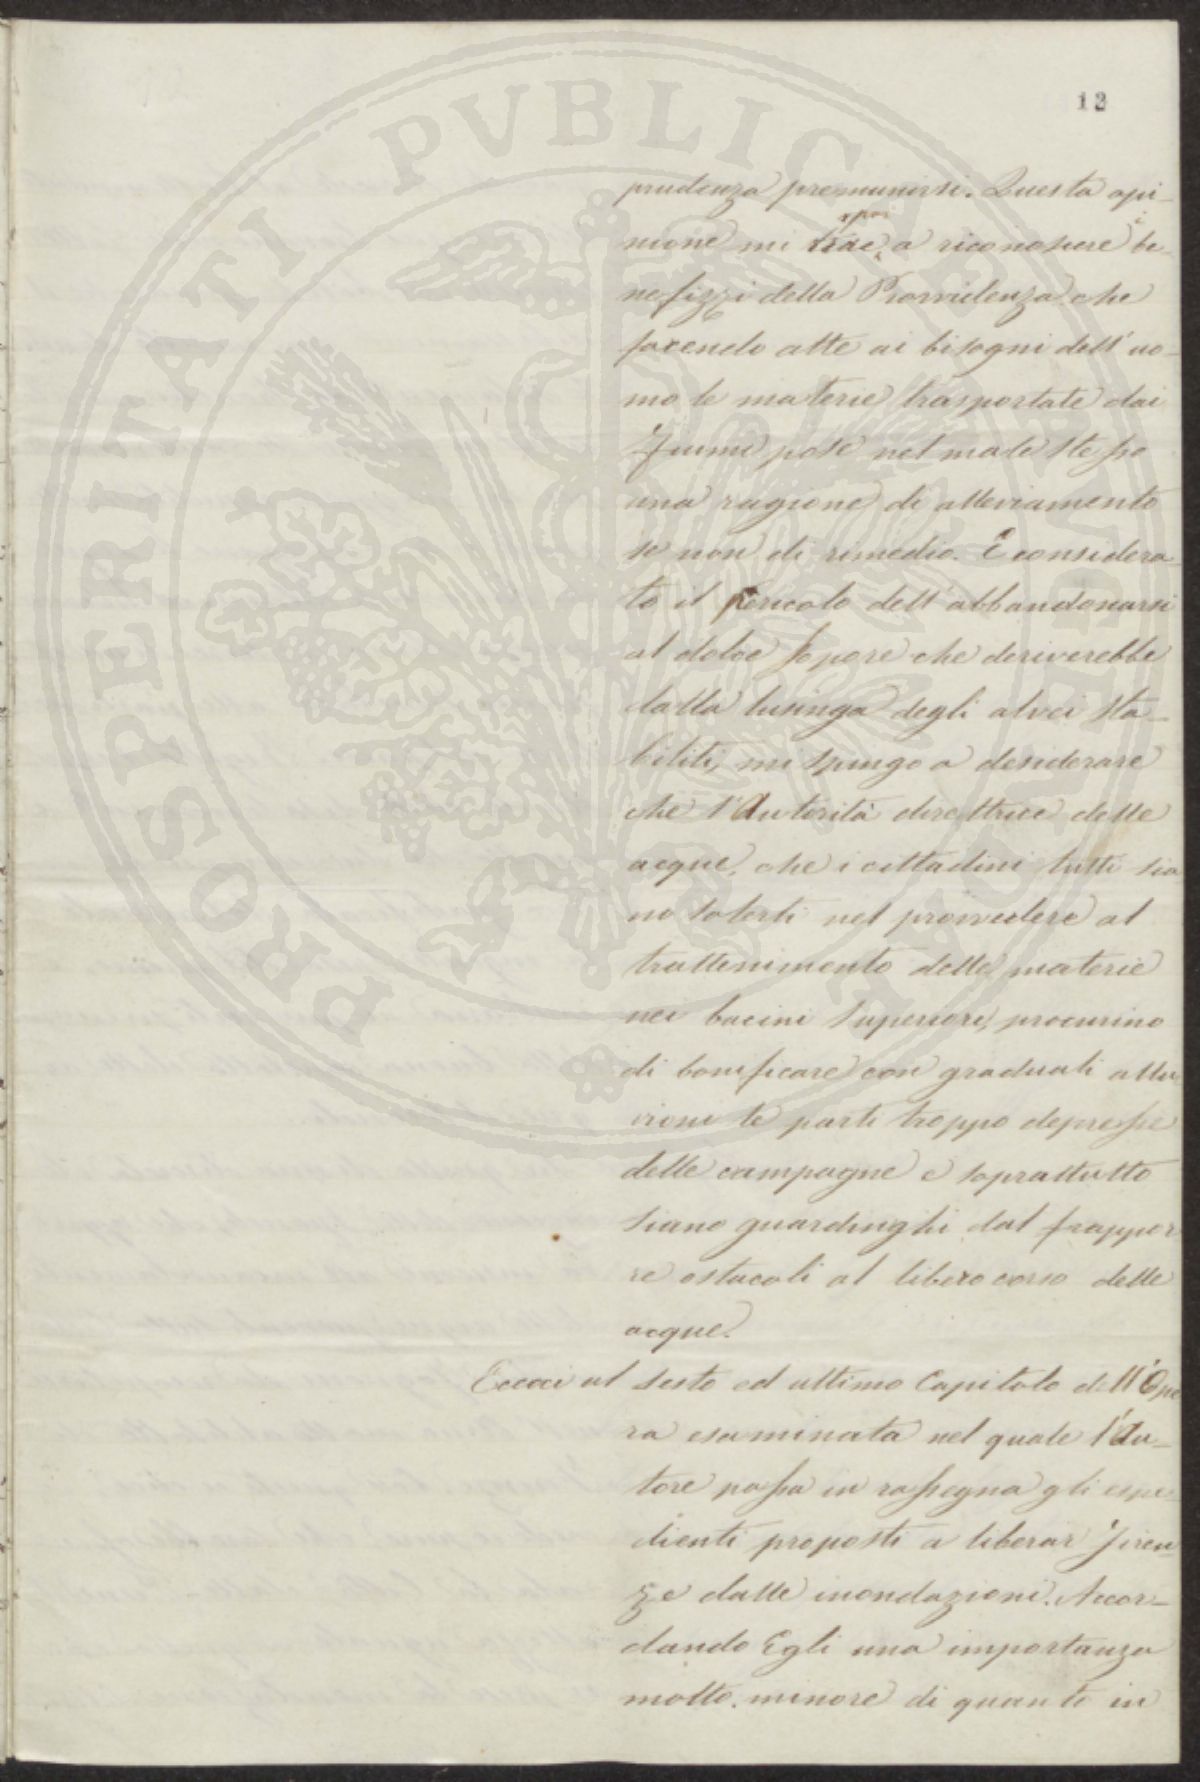 12
prudenza premunirsi. Questa opi-
nione mi trae a riconoscere i be-
nefizzi della Provvidenza che
facendo atte ai bisogni dell'uo-
mo le materie trasportate dai
Fiumi pose nel male stesso
una ragione di alleviamento
se non di rimedio. E considera-
to il pericolo dell'abbandonarsi
al dolce sopore che deriverebbe
dalla lusinga degli alvei sta-
biliti, mi spingo a desiderare
che l'Autorità direttrice delle
acque, che i cittadini tutti sia
no solerti nel provvedere al
trattenimento delle materie
nei bacini superiori, procurino
di bonificare con graduali allu
vioni le parti troppo depresse
delle campagne e soprattutto
siano guardinghi dal frappor
re ostacoli al libero corso delle
acque.
Eccoci al sesto ed ultimo Capitolo dell'Ope
ra esaminata nel quale l'Au-
tore passa in rassegna gli espe-
dienti proposti a liberar Firen-
ze dalle inondazioni. Accor-
dando Egli una importanza
molto minore di quanto in
PROSPERITATI PVBLICAE AVGENDAE